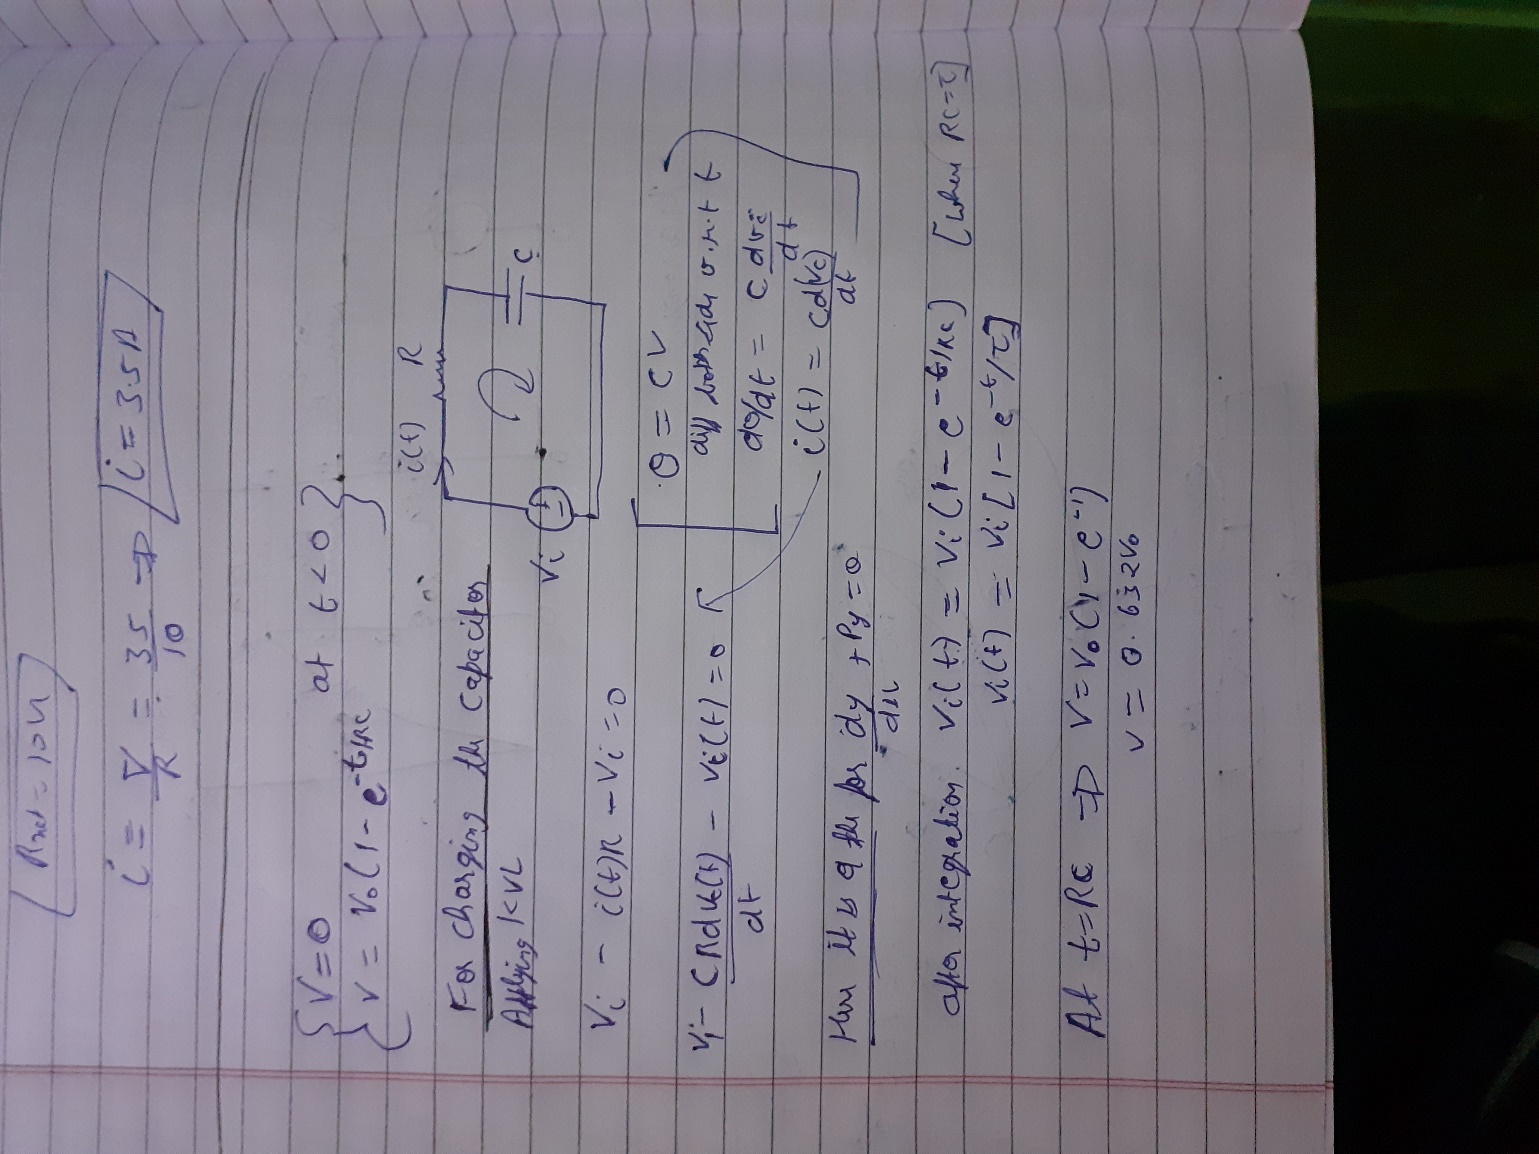 Rnet = 10Ω
i = V/R = 35/10 ⇒ i = 3.5A
{ V = 0 at t < 0 }
{ V = V₀(1 - e^-t/RC }
For charging the capacitor
i(t) R
Vi
C
Applying KVL
Vi - i(t)R - Vi = 0
Q = CV
diff both side w.r.t t
dQ/dt = C dvc/dt
i(t) = C d(Vc)/dt
Vi - CRdVc(t)/dt - Vc(t) = 0
for dy/dx + Py = Q
after integration. Vi(t) = Vi(1 - e^-t/RC) [when RC = τ]
Vi(t) = Vi[1 - e^-t/τ]
At t = RC ⇒ V = V₀(1 - e^-1)
V = 0.632V₀